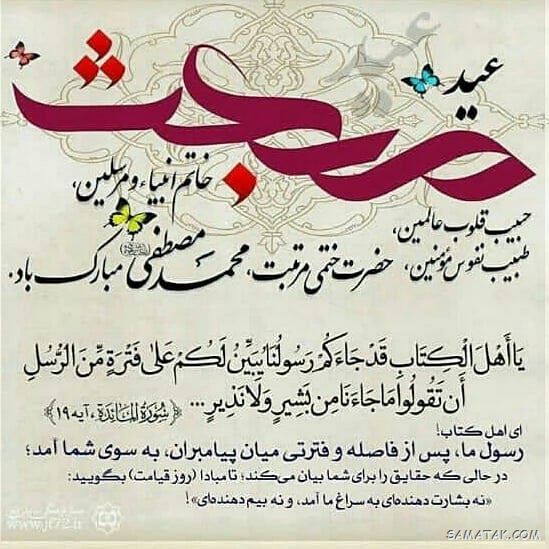 عید
مبعث
خاتم انبیاء و مرسلین،
حبیب قلوب عالمین،
طبیب نفوس مؤمنین، حضرت ختمی مرتبت، محمد مصطفی مبارک باد.
يَا أَهْلَ الْكِتَابِ قَدْ جَاءَكُمْ رَسُولُنَا يُبَيِّنُ لَكُمْ عَلَىٰ فَتْرَةٍ مِّنَ الرُّسُلِ
أَن تَقُولُوا مَا جَاءَنَا مِن بَشِيرٍ وَلَا نَذِيرٍ... ﴿سُورَةُ الْمَائِدَة، آیه ۱۹﴾
ای اهل کتاب!
رسول ما، پس از فاصله و فترتی میان پیامبران، به سوی شما آمد؛
در حالی که حقایق را برای شما بیان می‌کند؛ تا مبادا (روز قیامت) بگویید:
«نه بشارت دهنده‌ای به سراغ ما آمد، و نه بیم دهنده‌ای»!
www.jf72.ir
SAMATAK.COM